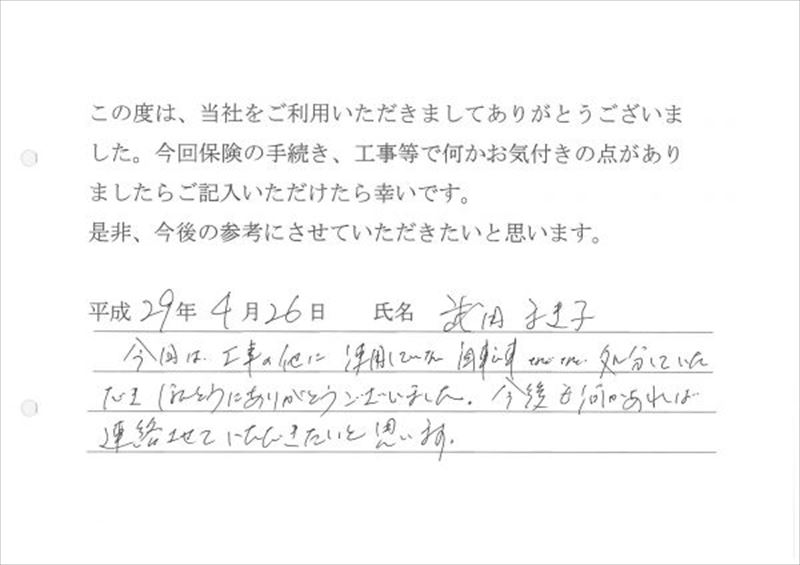 この度は、当社をご利用いただきましてありがとうございま
した。今回保険の手続き、工事等で何かお気付きの点があり
ましたらご記入いただけたら幸いです。
是非、今後の参考にさせていただきたいと思います。
平成 29年 4月26日 氏名 武田 子
今回は、工事の他に 自転車 処分していた
だき ほんとうにありがとうございました。今後も何かあれば
連絡させていただきたいと思います。